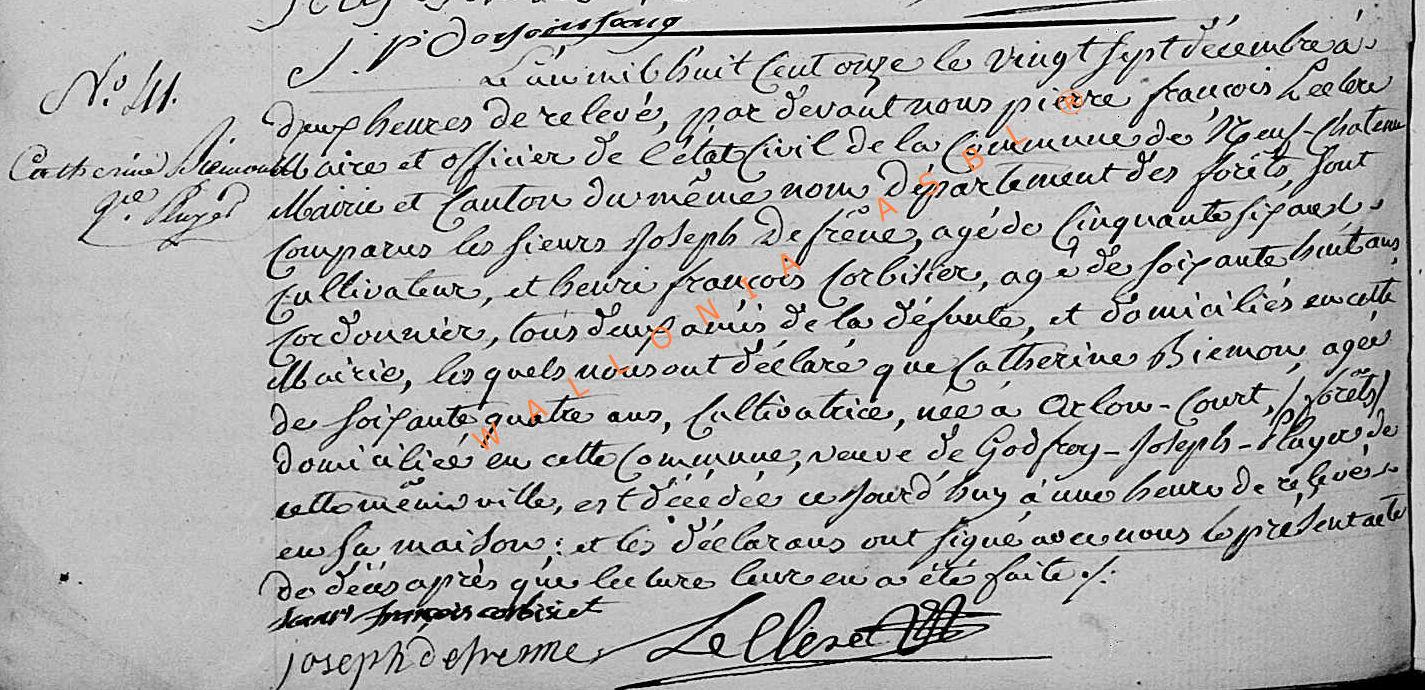 N.° 41.
Catherine Biemon
L'an mil huit Cent onze le vingt sept décembre à
deux heures de relevé, par devant nous pierre françois Leclerc
Maire et officier de l'état Civil de la Commune de Neuf-chateau
Mairie et Canton du même nom département des forêts, sont
Comparus les sieurs Joseph Defrêne, agé de Cinquante six ans
Cultivateur, et henri françois Corbisier, agé de soixante huit ans,
Cordonnier, tous deux amis de la défunte, et domiciliés en cette
Mairie, lesquels nous ont déclaré que Catherine Biemon, agée
de soixante quatre ans, Cultivatrice, née à Orlon-Court, (forêts)
domiciliée en cette Commune, veuve de Godfroy-Joseph-Pluyer de
cette même ville, est décédée ce jourd'huy à une heure de relevée
en sa maison: et les déclarans ont signé avec nous le présent acte
de décès après que lecture leur en a été faite ./.
henri françois corbisiet
joseph defrenne Leclerc
WALLONIA ASBL ®